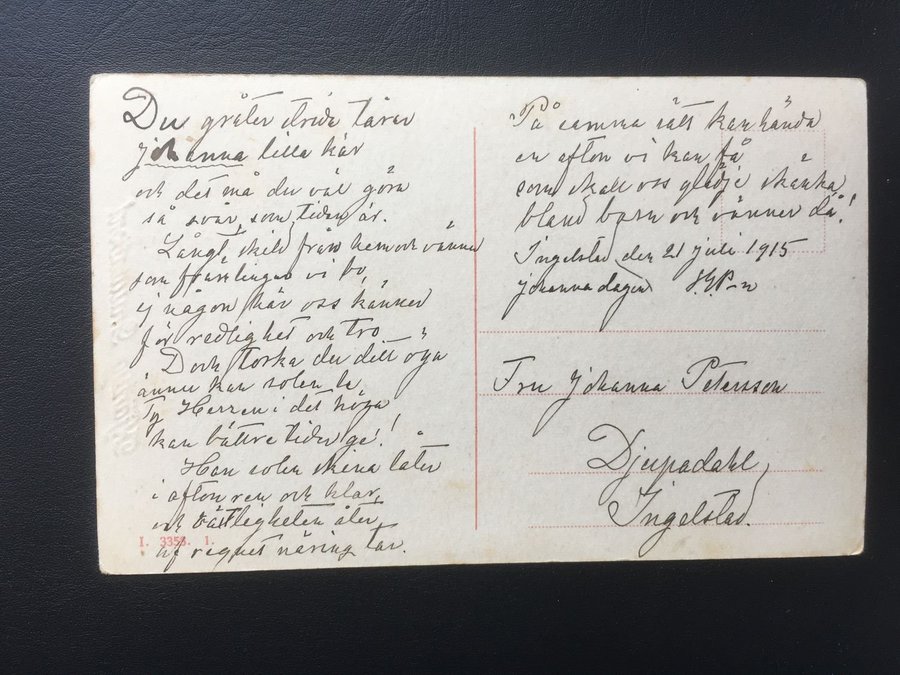 Du gråter strida tårar
Johanna lilla här
och det må du väl göra
så svår, som tiden är.
Långt skild från hem och vänner
som främlingar vi bo,
ej någon här oss känner
för redlighet och tro
Dock torka du ditt öga
ännu kan solen le,
Ty Herren i det höga
kan bättre tider ge!
Han solen skina låter
i afton ren och klar,
och växtligheten åter,
af regnet näring tar.
I. 3353. 1.
På samma sätt kan hända
en afton vi kan få
som skall oss glädje skänka,
bland barn och vänner då!
Ingelstad den 21 juli 1915
Johannadagen
Fru Johanna Petersson
Djupadahl,
Ingelstad.